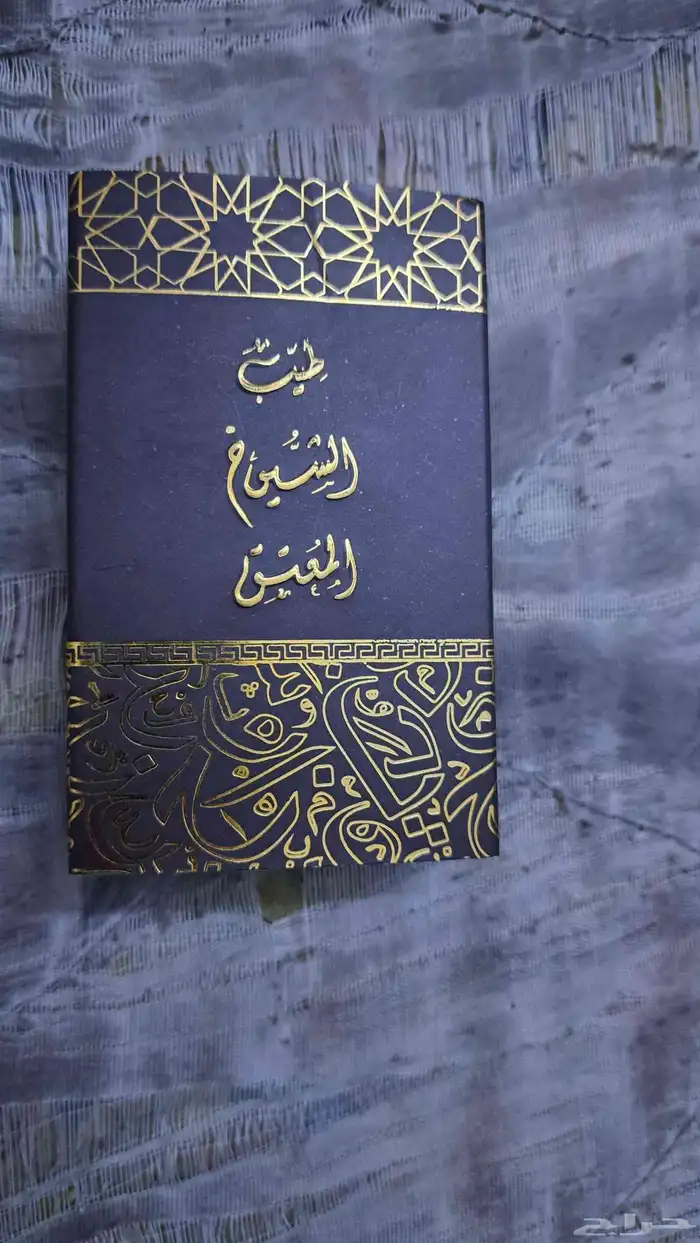 طِيبُ
الشُّيوخ
المُعتق
حراج